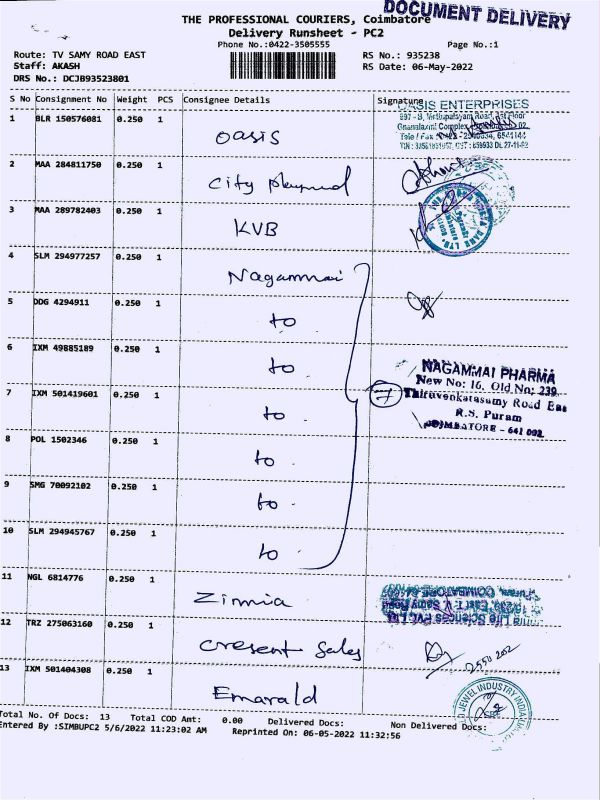 DOCUMENT DELIVERY
THE PROFESSIONAL COURIERS, Coimbatore
Delivery Runsheet - PC2
Phone No.:0422-3505555 Page No.:1
Route: TV SAMY ROAD EAST RS No.: 935238
Staff: AKASH RS Date: 06-May-2022
DRS No.: DCJB93523801
S No Consignment No Weight PCS Consignee Details Signature
OASIS ENTERPRISES
1 BLR 150576081 0.250 1 oasis
2 MAA 284811750 0.250 1 city
3 MAA 289782403 0.250 1 KVB
4 SLM 294977257 0.250 1 Nagammai
5 DDG 4294911 0.250 1 to
6 IXM 49885189 0.250 1 to
NAGAMMAI PHARMA
New No: 16, Old No: 239,
7 IXM 501419601 0.250 1 to 7
Thiruvenkatasamy Road East
R.S. Puram
COIMBATORE - 641 002.
8 POL 1502346 0.250 1 to
9 SMG 70092102 0.250 1 to
10 SLM 294945767 0.250 1 to
11 NGL 6814776 0.250 1 Zimnia
12 TRZ 275063160 0.250 1 cresent sales
13 IXM 501404308 0.250 1 Emarald
JEWEL INDUSTRY INDIA
Total No. Of Docs: 13 Total COD Amt: 0.00 Delivered Docs: Non Delivered Docs:
Entered By :SIMBUPC2 5/6/2022 11:23:02 AM Reprinted On: 06-05-2022 11:32:56